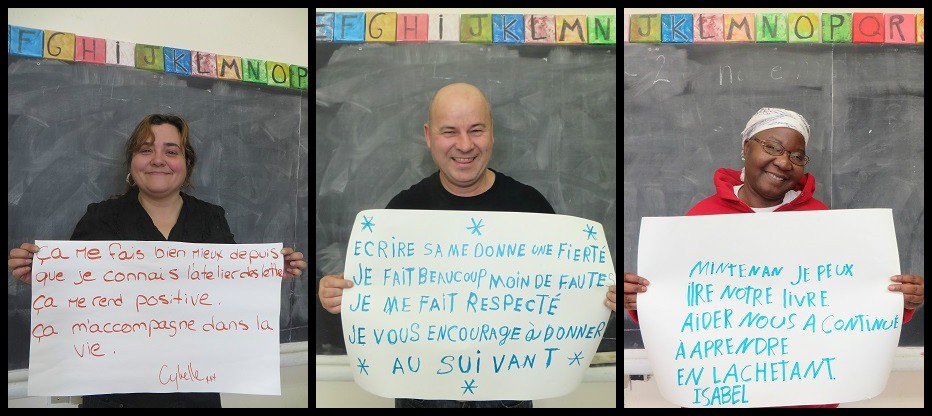 F G H I J K L M N O P
Ça me fais bien mieux depuis
que je connais l'atelier des lettres
Ça me rend positive.
Ça m'accompagne dans la
vie.
Cybelle xxx
E F G H I J K L M N
ECRIRE SA ME DONNE UNE FIERTÉ
JE FAIT BEAUCOUP MOIN DE FAUTES
JE ME FAIT RESPECTÉ
JE VOUS ENCOURAGE à DONNER
AU SUIVANT
J K L M N O P Q R
MINTENAN JE PEUX
lIRE NOTRE lIVRE
AIDER NOUS A CONTINUÉ
À APRENDRE
EN LACHETANT.
ISABEL